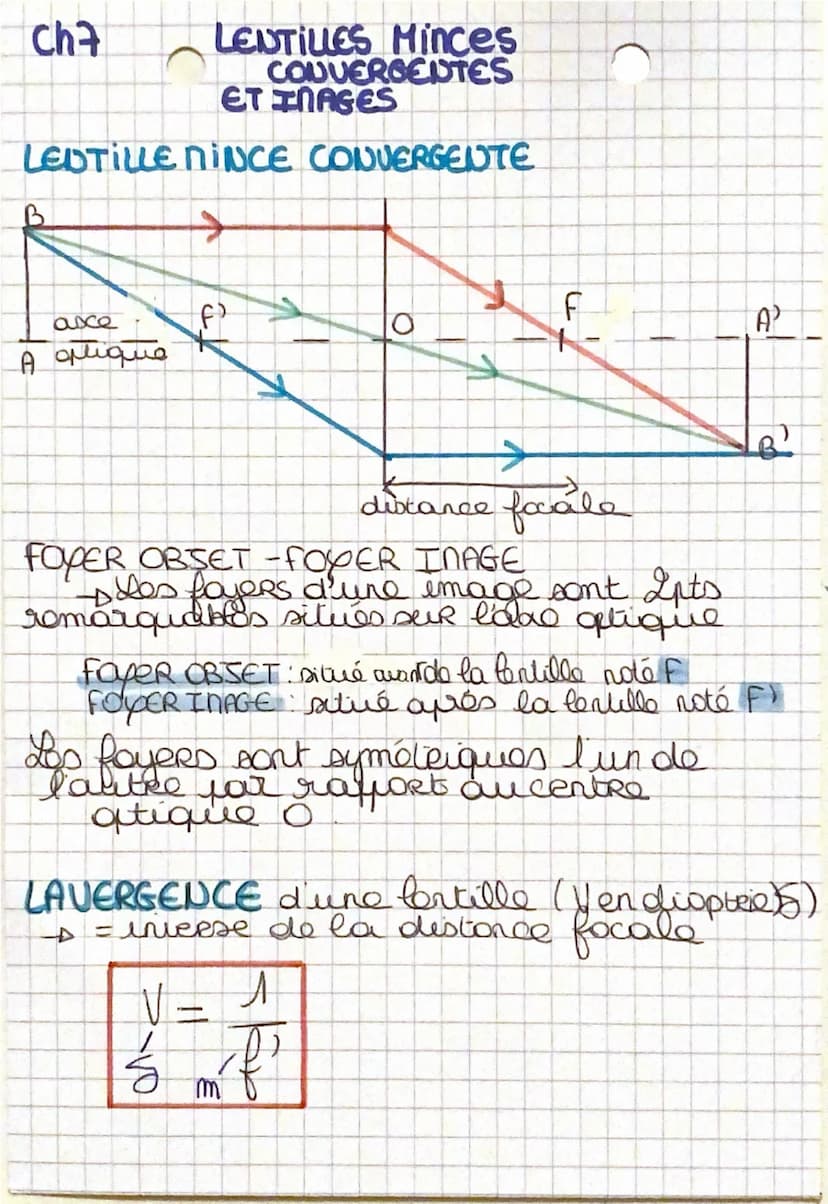 Ch7
LENTILLES MINCES
CONVERGENTES
ET IMAGES
LENTILLE MINCE CONVERGENTE
B
axe
optique
A
F'
O
F
A'
B'
distance focale
FOYER OBJET - FOYER IMAGE
→ Les foyers d'une image sont 2pts
remarquables situés sur l'axe optique
FOYER OBJET : situé avant de la lentille noté F
FOYER IMAGE : situé après la lentille noté F'
Les foyers sont symétriques l'un de
l'autre par rapport au centre
optique O
LA VERGENCE d'une lentille (V en dioptrie δ)
→ = inverse de la distance focale
V = 1
f'
δ m